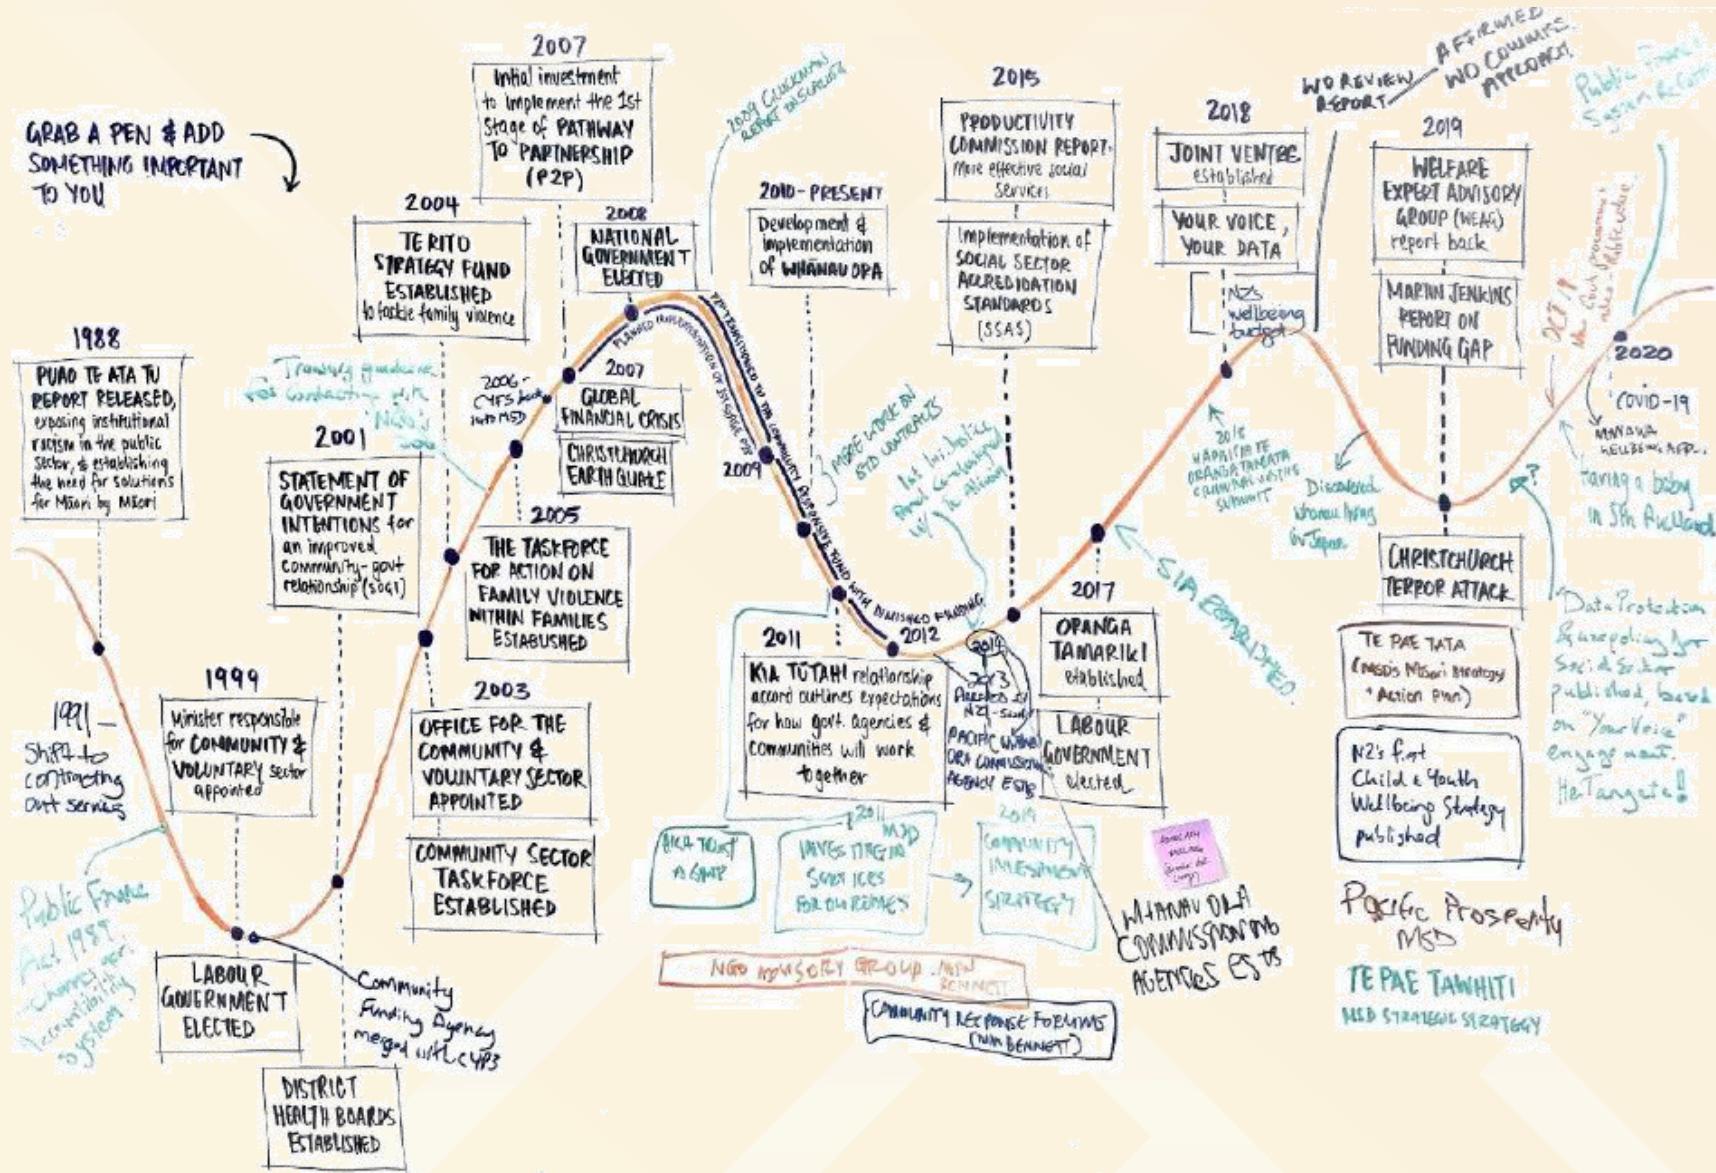 GRAB A PEN & ADD
SOMETHING IMPORTANT
TO YOU
1988
PUAO TE ATA TU
REPORT RELEASED,
exposing institutional
racism in the public
sector, & establishing
the need for solutions
for Māori by Māori
1991 -
Shift to
contracting
out services
Public Finance
Act 1989
- Changes
Accountability
System
1999
Minister responsible
for COMMUNITY &
VOLUNTARY sector
appointed
LABOUR
GOVERNMENT
ELECTED
Community
Funding Agency
merged with CYPS
DISTRICT
HEALTH BOARDS
ESTABLISHED
2001
STATEMENT OF
GOVERNMENT
INTENTIONS for
an improved
community-govt
relationship (SOGI)
2003
OFFICE FOR THE
COMMUNITY &
VOLUNTARY SECTOR
APPOINTED
COMMUNITY SECTOR
TASKFORCE
ESTABLISHED
2004
TE RITO
STRATEGY FUND
ESTABLISHED
to tackle family violence
Treasury guidelines
For contracting with
NGO's
2005
THE TASKFORCE
FOR ACTION ON
FAMILY VIOLENCE
WITHIN FAMILIES
ESTABLISHED
2006 -
CYFS back
into MSD
2007
Initial investment
to implement the 1st
Stage of PATHWAY
TO PARTNERSHIP
(P2P)
2008
NATIONAL
GOVERNMENT
ELECTED
2007
GLOBAL
FINANCIAL CRISIS
CHRISTCHURCH
EARTHQUAKE
PLANNED IMPLEMENTATION OF 1ST STAGE P2P
P2P TRANSITIONED TO THE COMMUNITY RESPONSIVE FUND WITH DIMISHED FUNDING
2009 GLUCKMAN
REPORT
2009
2010 - PRESENT
Development &
implementation
of WHĀNAU ORA
MORE WORK ON
CONTRACTS
2011
KIA TŪTAHI relationship
accord outlines expectations
for how govt. agencies &
communities will work
together
2012
2014
2013
PACIFIC
ORA COMMISSION
AGENCY ESTB
2011 MSD
INVESTING IN
SERVICES
FOR OUTCOMES
COMMUNITY
INVESTMENT
STRATEGY
NGO ADVISORY GROUP
BENNETT
COMMUNITY RESPONSE FORUMS
(MIN BENNETT)
WHANAU ORA
COMMISSIONING
AGENCIES ESTB
2015
PRODUCTIVITY
COMMISSION REPORT.
More effective social
services
Implementation of
SOCIAL SECTOR
ACCREDIATION
STANDARDS
(SSAS)
2017
ORANGA
TAMARIKI
established
LABOUR
GOVERNMENT
elected
SIA ESTABLISHED
2018
JOINT VENTRE
established
YOUR VOICE,
YOUR DATA
NZ's
wellbeing
budget
2018
HAPAITIA TE
ORANGA TANGATA
CRIMINAL JUSTICE
SUMMIT
WO REVIEW
REPORT
AFFIRMED
WO COMMISS.
APPROACH
Discovered
whanau living
in Japan
2019
WELFARE
EXPERT ADVISORY
GROUP (WEAG)
report back
MARTIN JENKINS
REPORT ON
FUNDING GAP
CHRISTCHURCH
TERROR ATTACK
TE PAE TATA
(MSD's Māori Strategy
+ Action Plan)
NZ's first
Child & Youth
Wellbeing Strategy
published
Pacific Prosperity
MSD
TE PAE TAWHITI
MSD STRATEGIC STRATEGY
Public Finance
System Reform
OCT 19
2020
COVID-19
having a baby
in Sth Auckland
?
Data Protection
& use policy for
Social Sector
published, based
on "Your Voice"
engagement.
He Tangata!